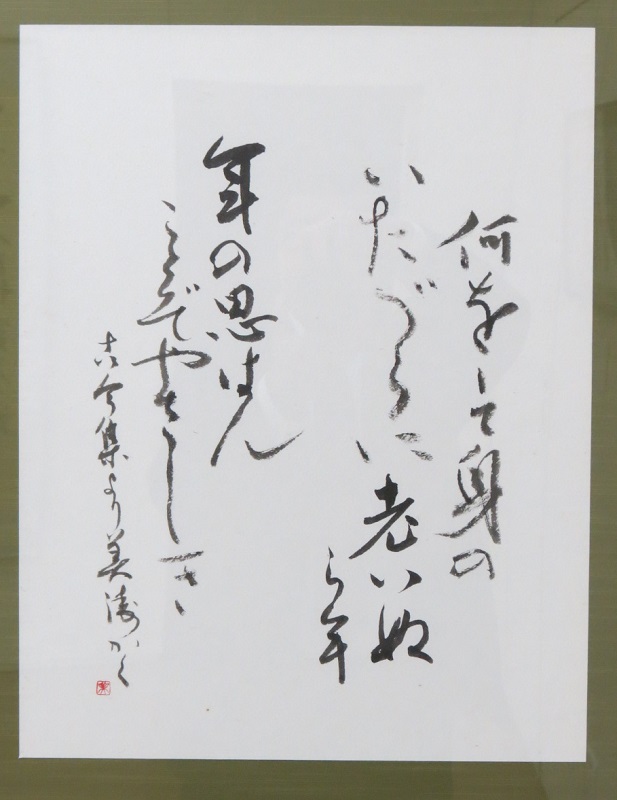 何をして身の
いたづらに老いぬ
ら牟
年の思はん
ことぞやさしき
古今集より かく